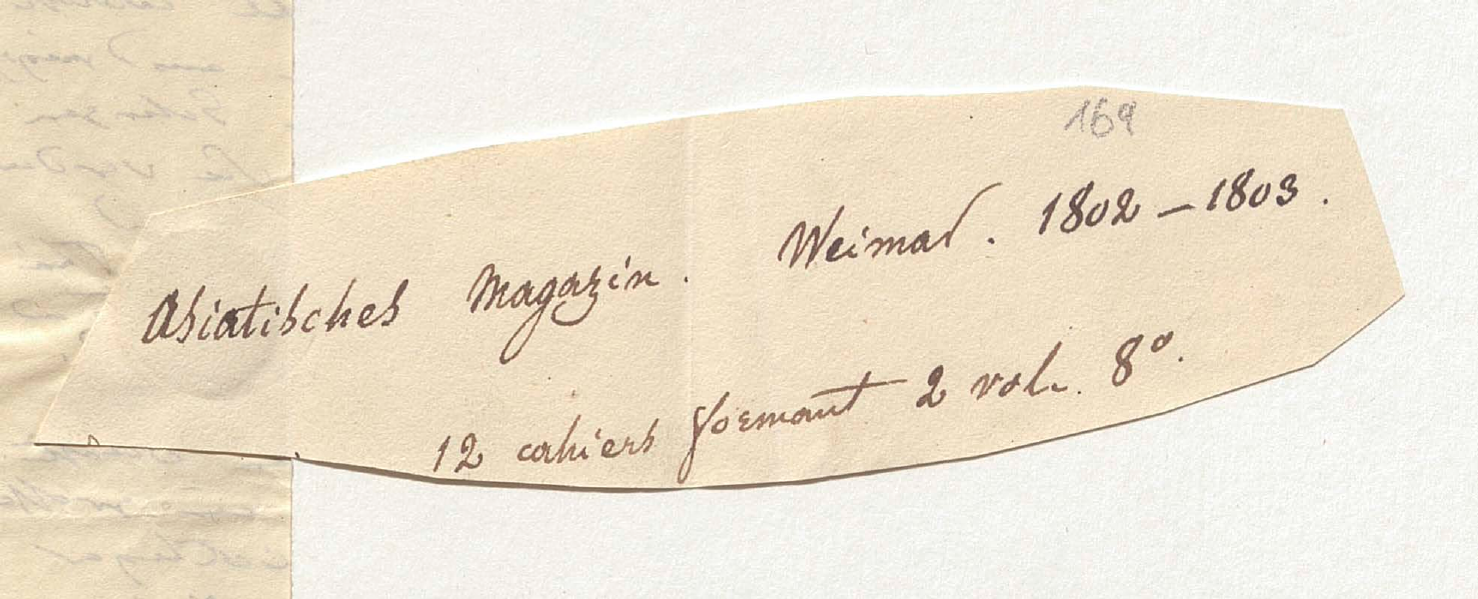 169
Asiatisches Magazin. Weimar. 1802 – 1803.
12 cahiers formant 2 vol. 8º.